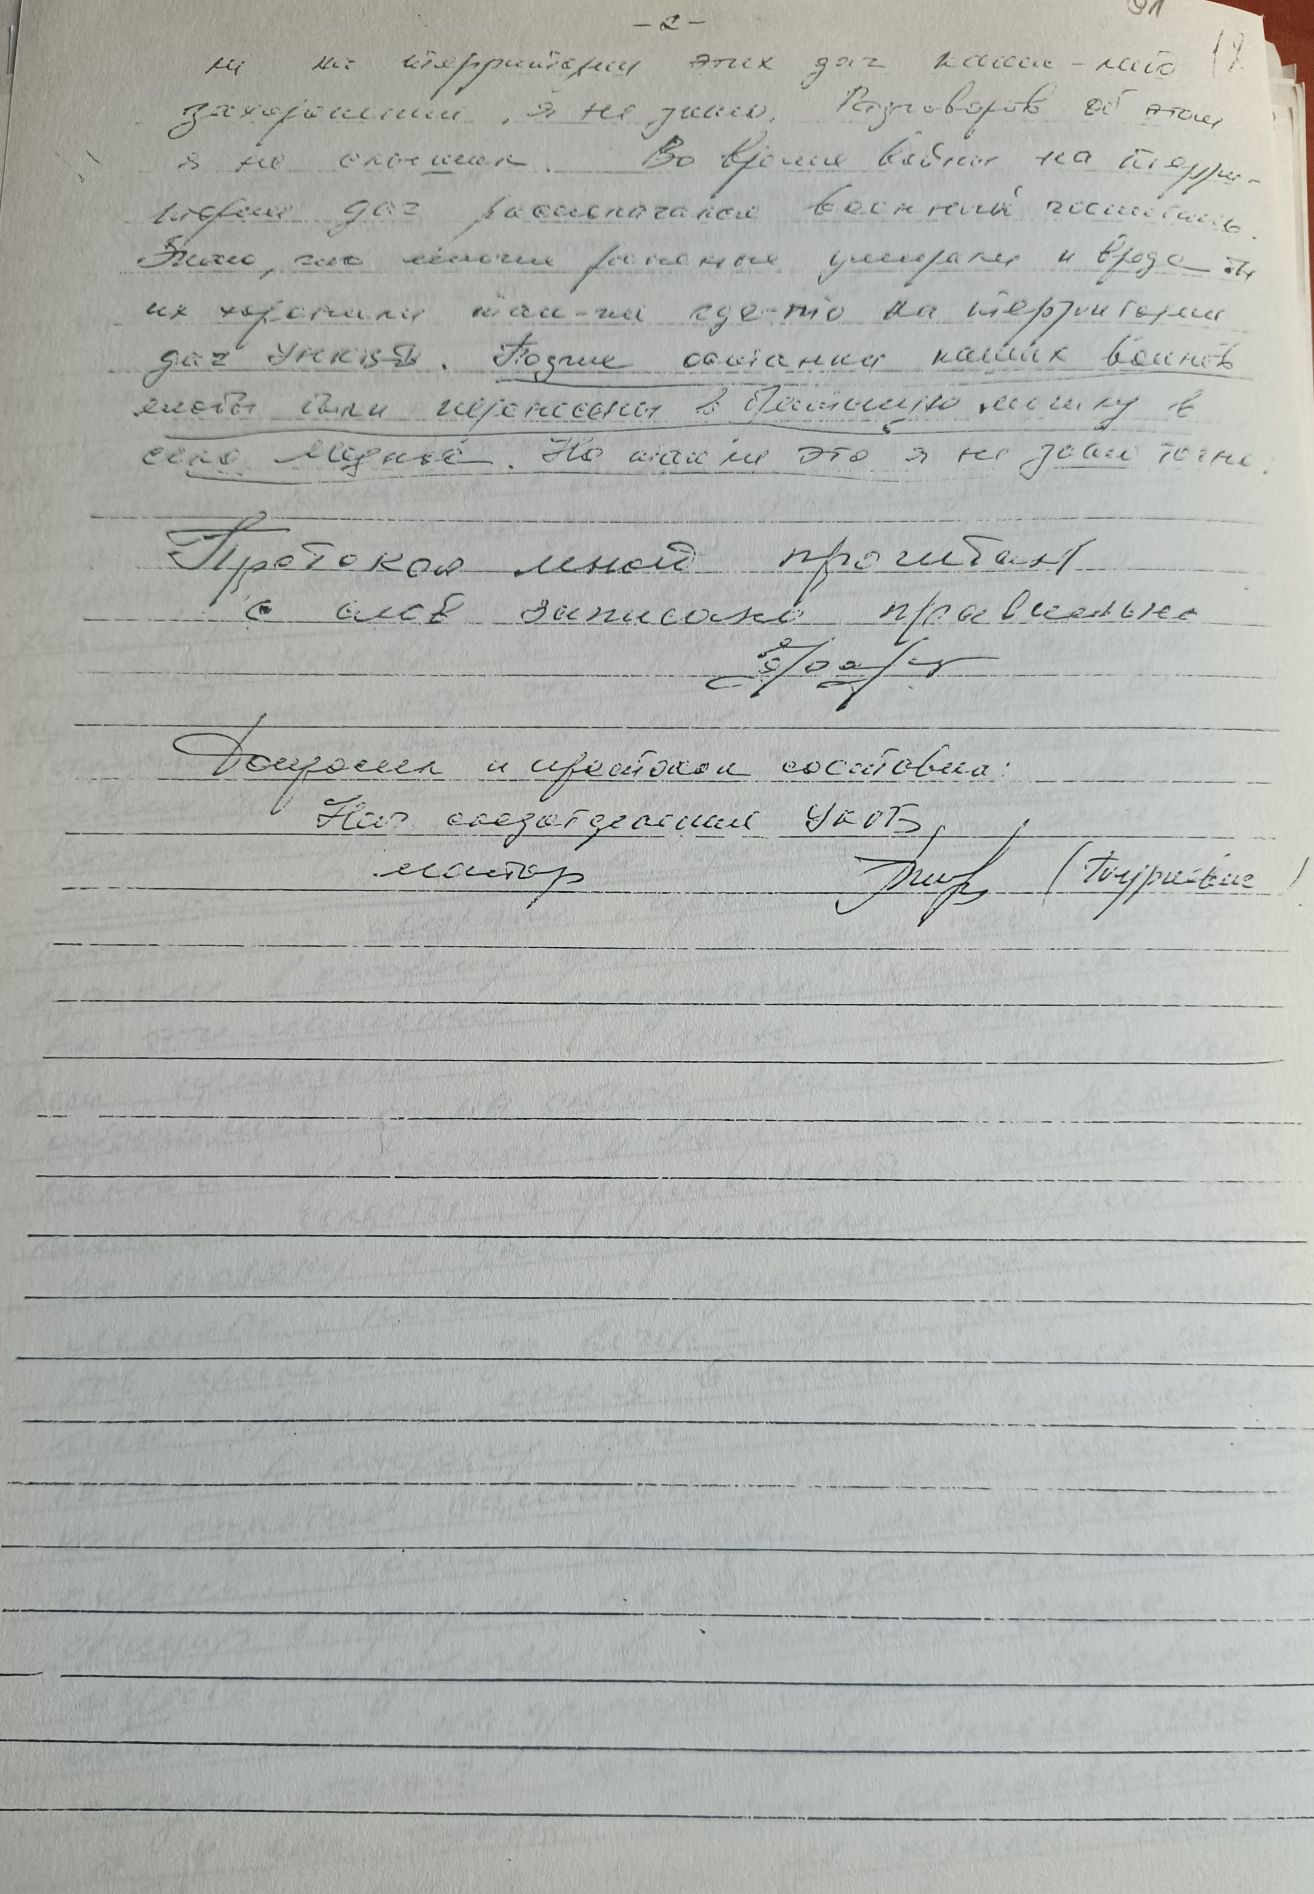 - 2 -
91
12
ли на территории этих дач какие-либо
захоронения, я не знаю. Разговоров об этом
я не слышал. Во время войны на терри-
тории дач располагался военный госпиталь.
Знаю, что многие раненые умирали и вроде бы
их хоронили там-же где-то на территории
дач УНКВД. Позже останки наших воинов
якобы были перенесены в братскую могилу в
село Медное. Но так ли это я не знаю точно.
Протокол мной прочитан
с слов записано правильно
Допросил и протокол составил:
Нач. следотделения УКГБ,
майор